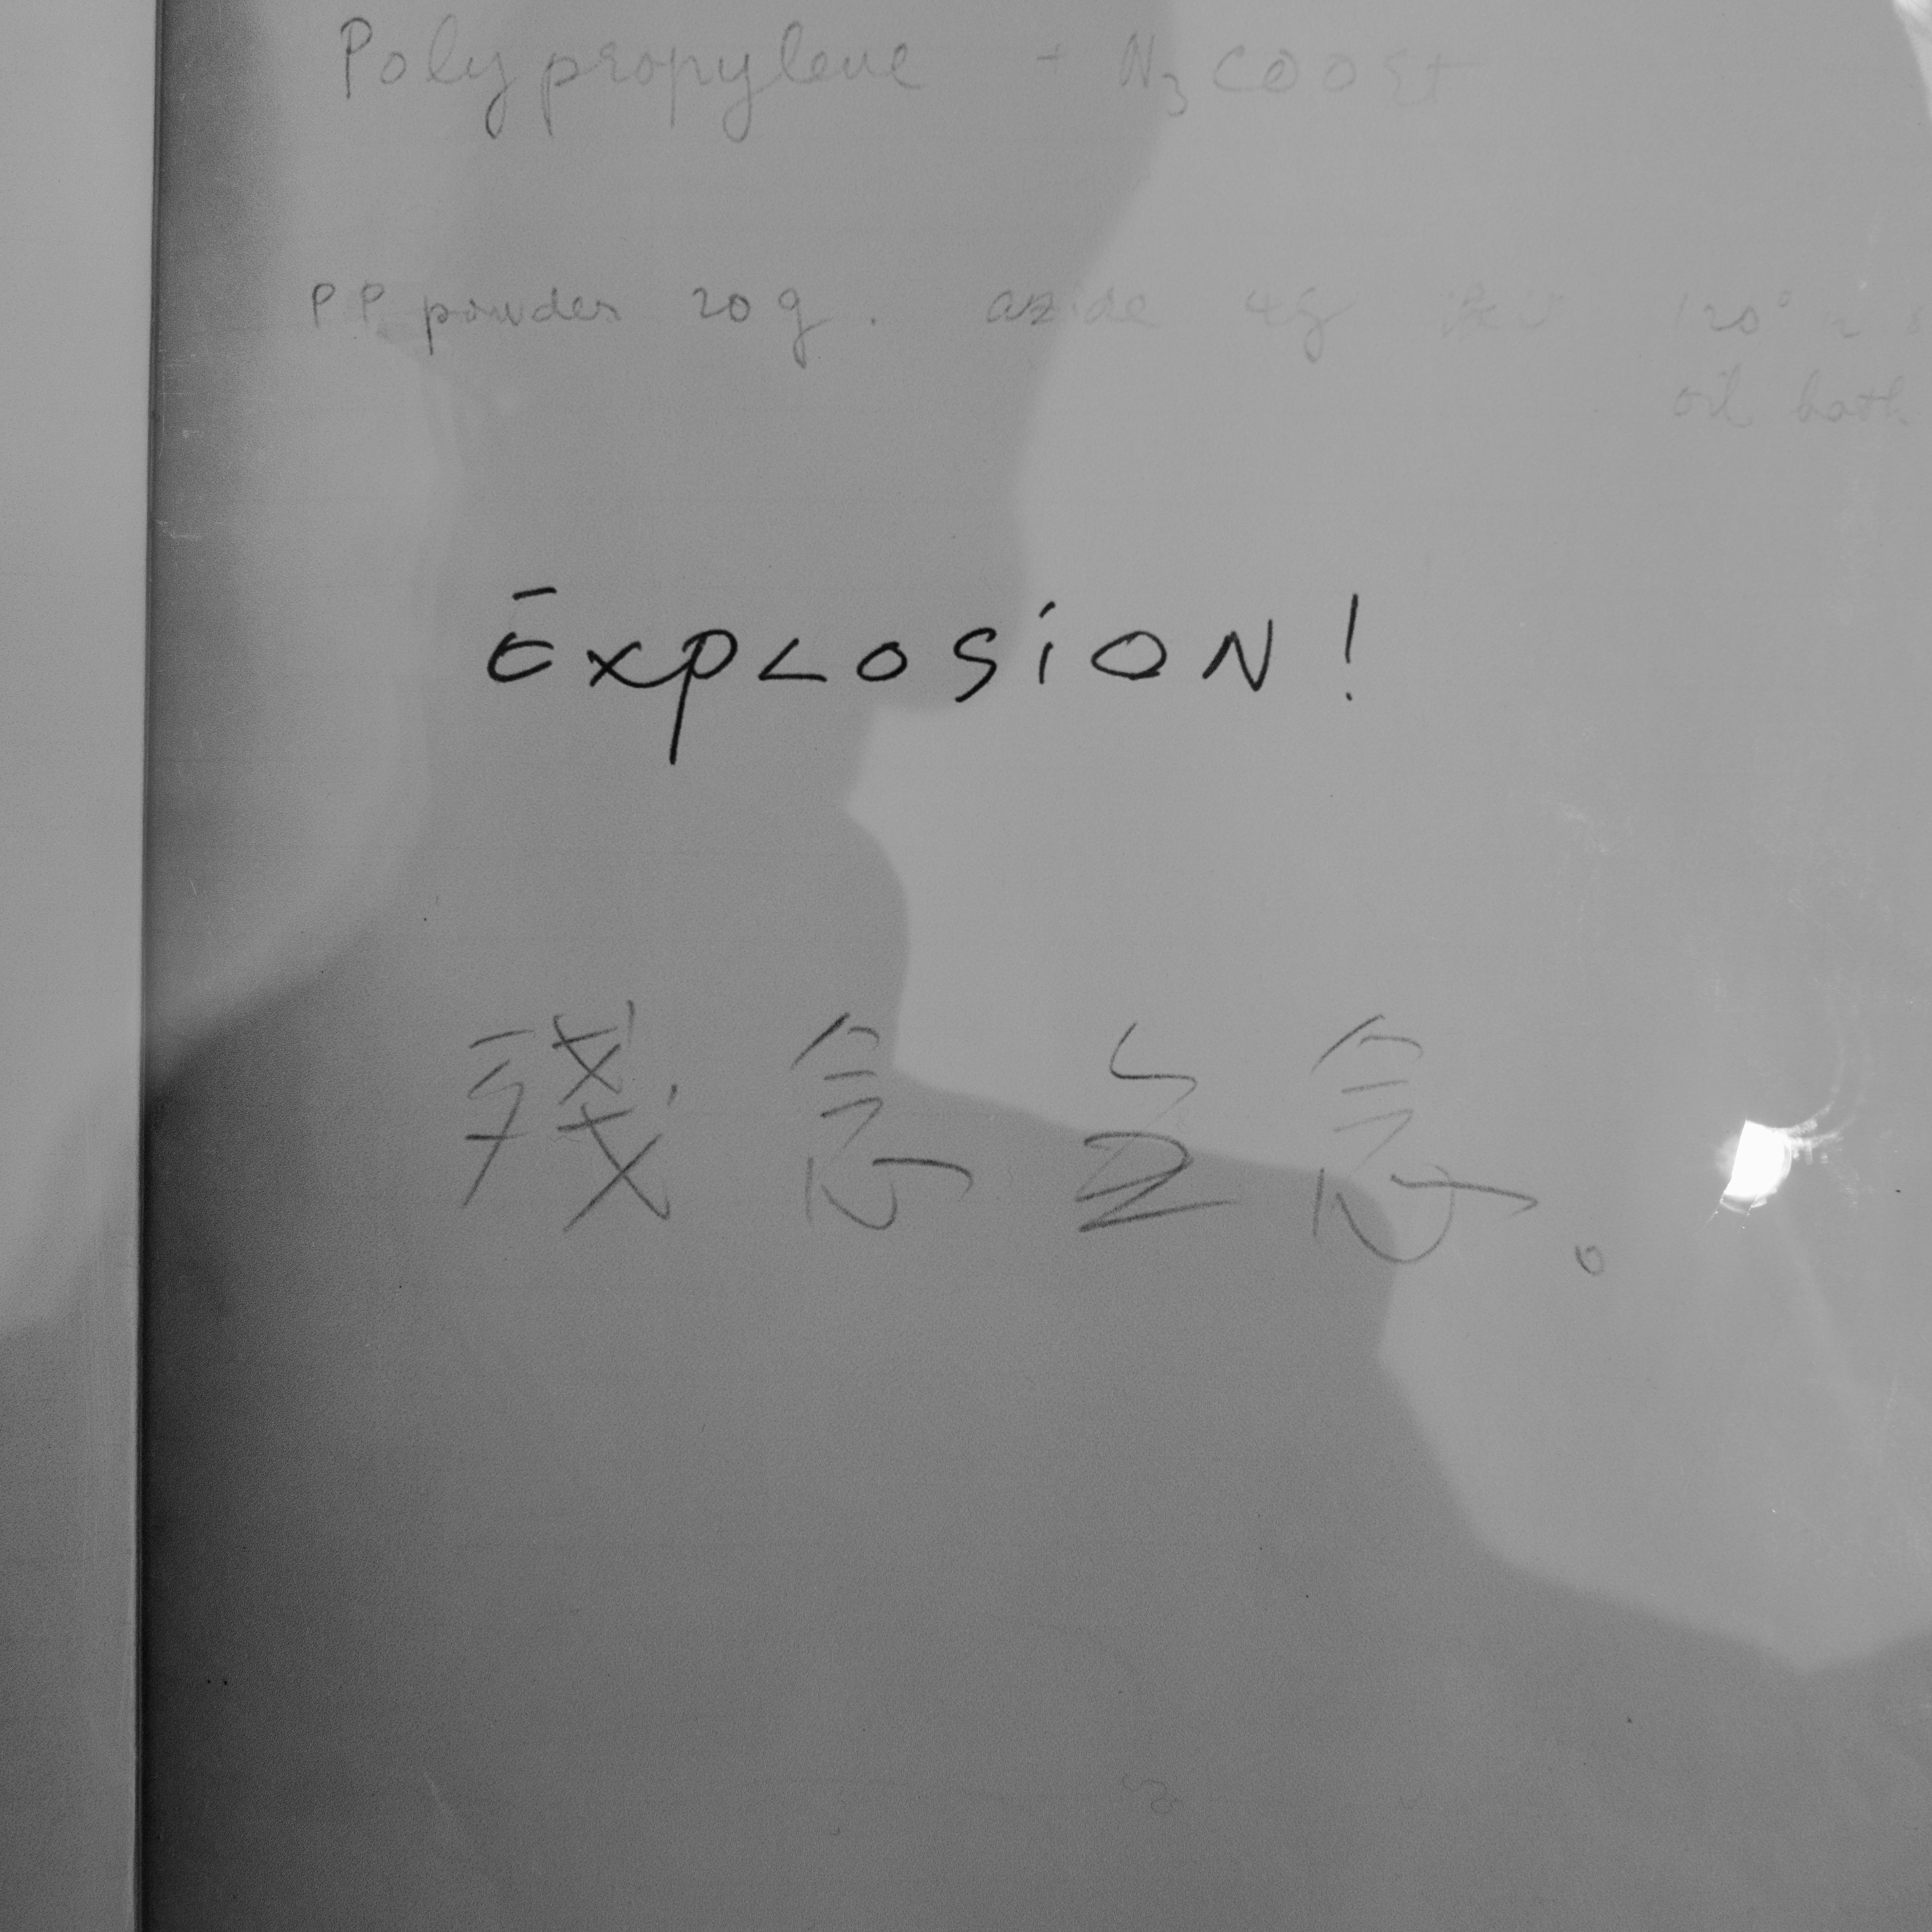 Polypropylene + N3COOEt
PP powder 20g. azide 4g 120°
oil bath
ExPLOSiON!
残念無念。